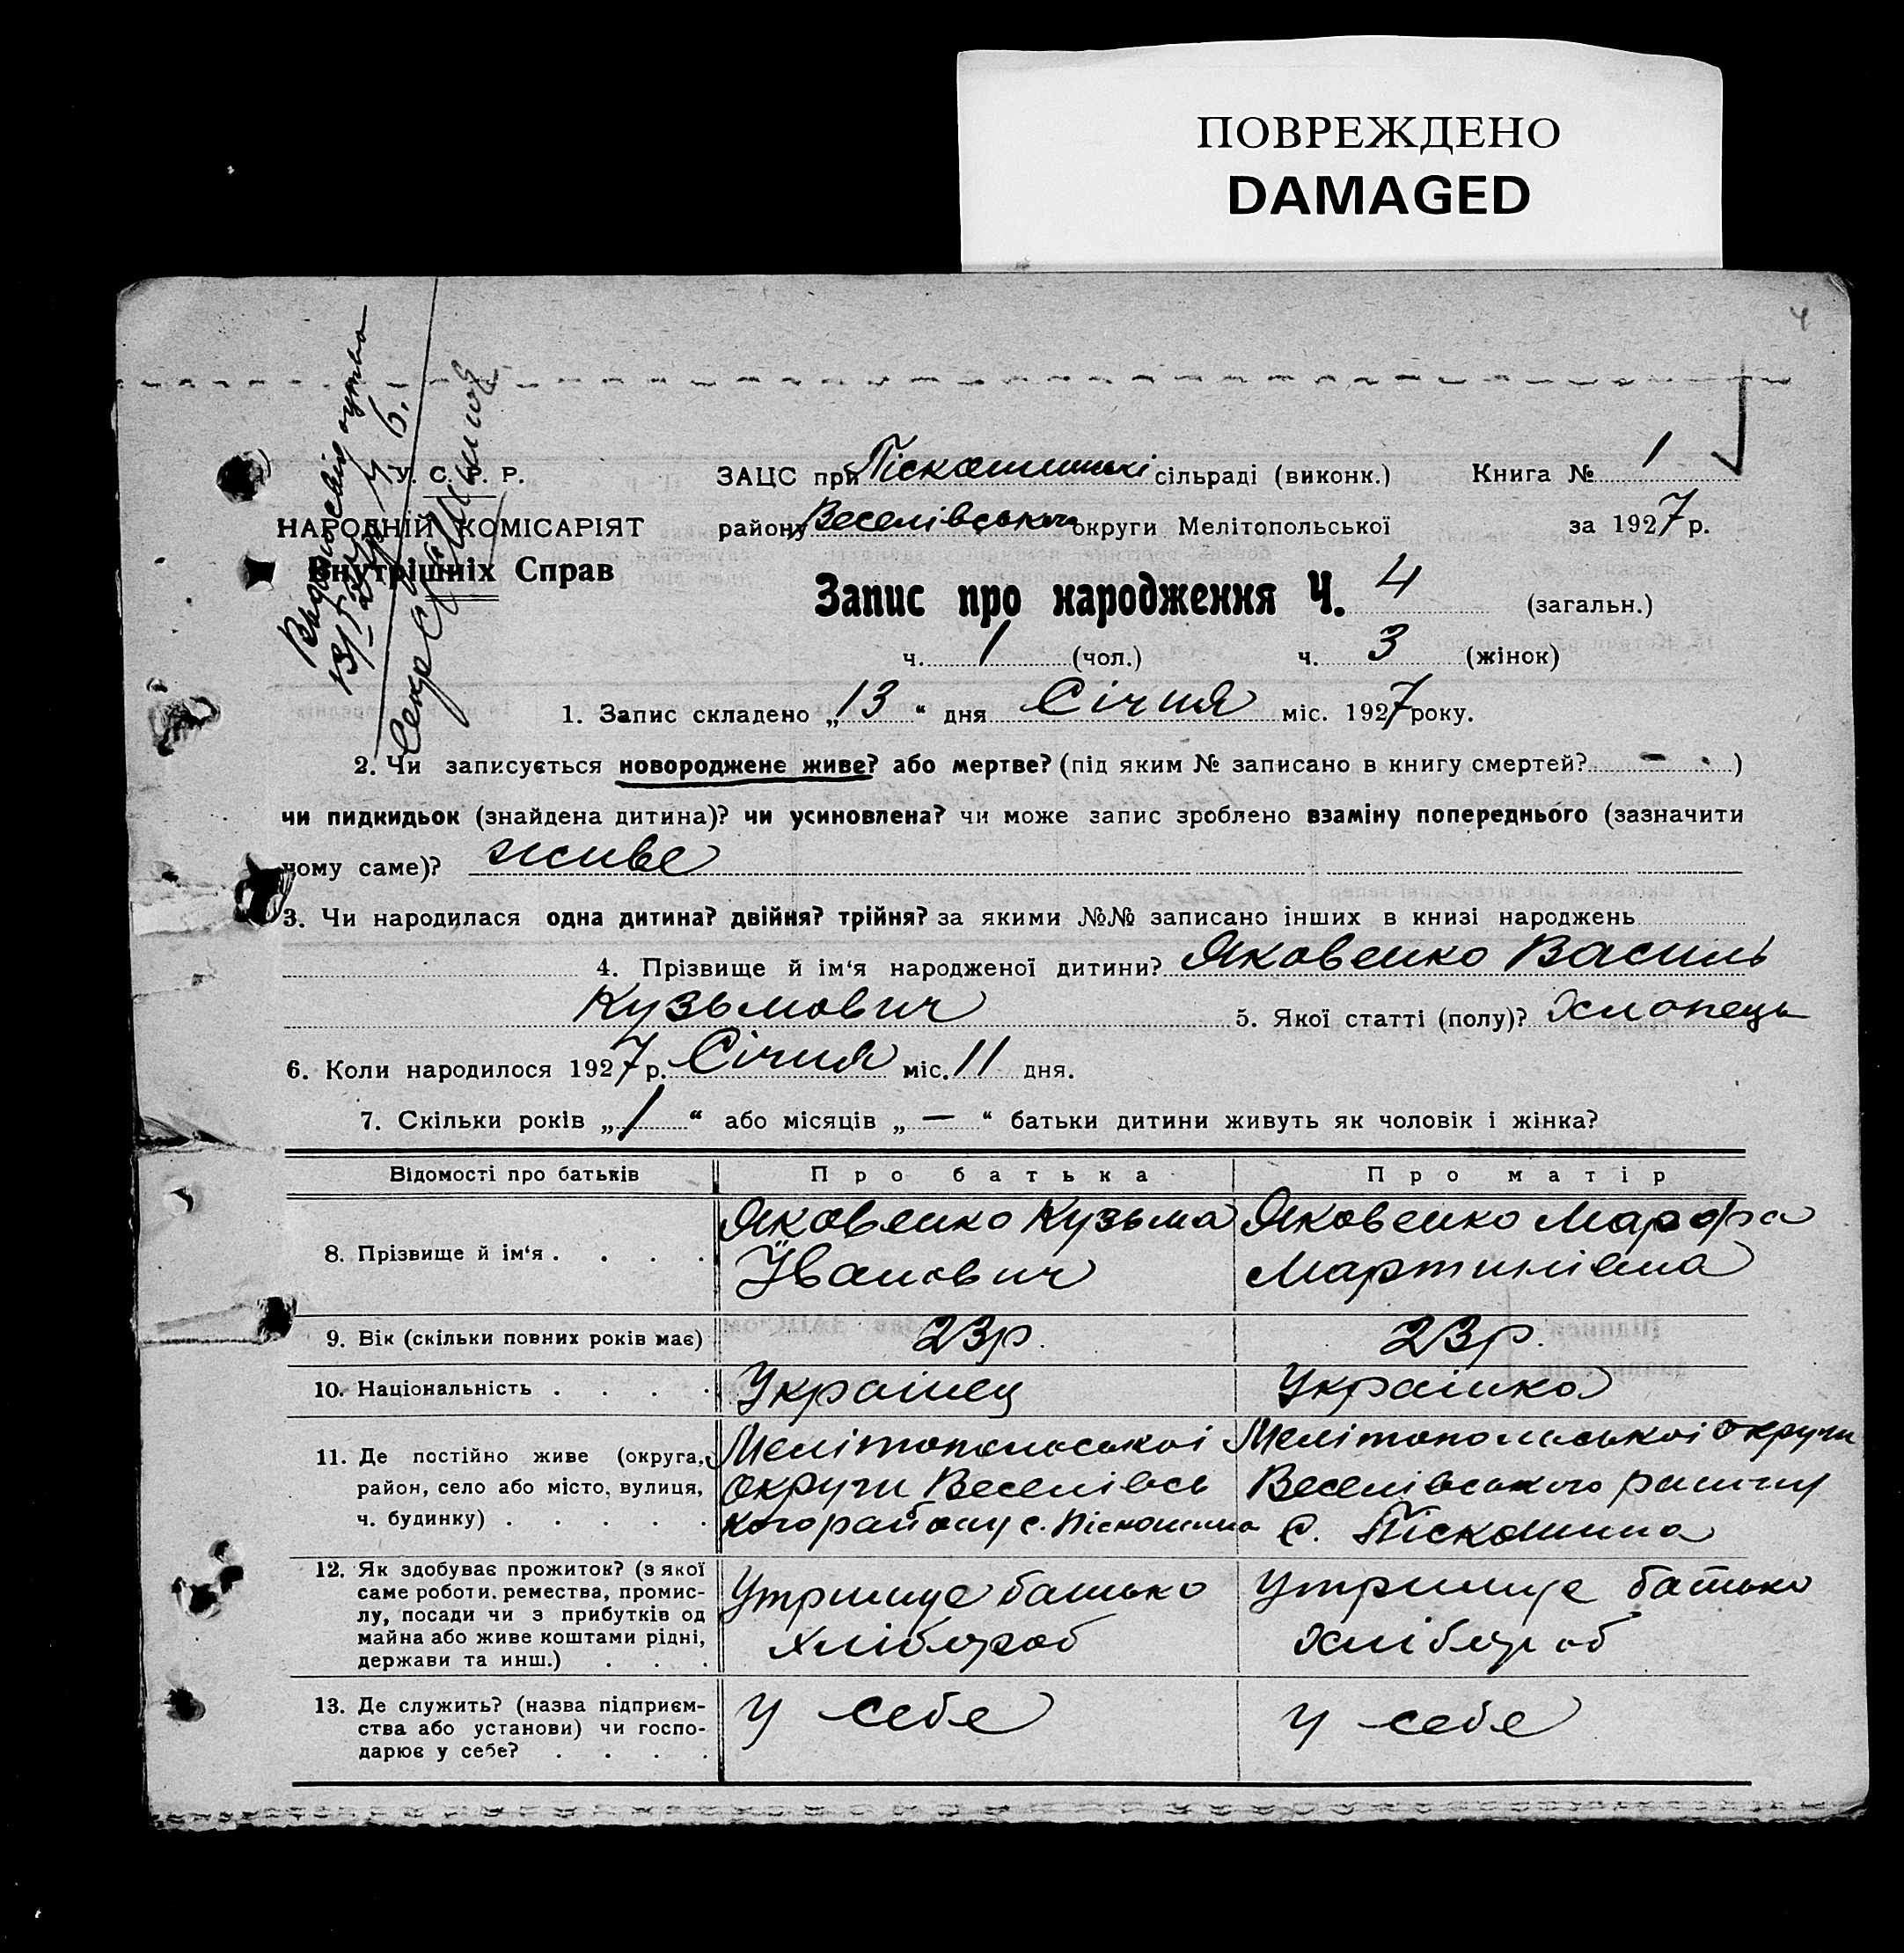 ПОВРЕЖДЕНО
DAMAGED
4
У. С. Р. Р.
НАРОДНІЙ КОМІСАРІЯТ
Внутрішніх Справ
ЗАЦС при Піскошинські сільраді (виконк.) Книга № 1
району Веселівського округи Мелітопольської за 1927 р.
Запис про народження Ч. 4 (загальн.)
ч. 1 (чол.) ч. 3 (жінок)
1. Запис складено „13“ дня Січня міс. 1927 року.
2. Чи записується новороджене живе? або мертве? (під яким № записано в книгу смертей? — )
чи пидкидьок (знайдена дитина)? чи усиновлена? чи може запис зроблено взаміну попереднього (зазначити
чому саме)? живе
3. Чи народилася одна дитина? двійня? трійня? за якими №№ записано інших в книзі народжень
4. Прізвище й ім‘я народженої дитини? Яковенко Василь
Кузьмович 5. Якої статті (полу)? Хлопець
6. Коли народилося 1927 р. Січня міс. 11 дня.
7. Скільки років „1“ або місяців „—“ батьки дитини живуть як чоловік і жінка?
Відомості про батьків Про батька Про матір
8. Прізвище й ім‘я . . . . Яковенко Кузьма Яковенко Марфа
Іванович Мартинівна
9. Вік (скільки повних років має) 23 р. 23 р.
10. Національність . . . . Українец Українка
11. Де постійно живе (округа, Мелітопольської Мелітопольської округи
район, село або місто, вулиця, округи Веселівсь Веселівського району
ч. будинку) . . . . . кого району с. Піскошина с. Піскошина
12. Як здобуває прожиток? (з якої
саме роботи. ремества, промис- Утримує батько Утримує батько
лу, посади чи з прибутків од
майна або живе коштами рідні, хлібороб хлібороб
держави та инш.) . . .
13. Де служить? (назва підприєм- У себе У себе
ства або установи) чи госпо-
дарює у себе? . . . .